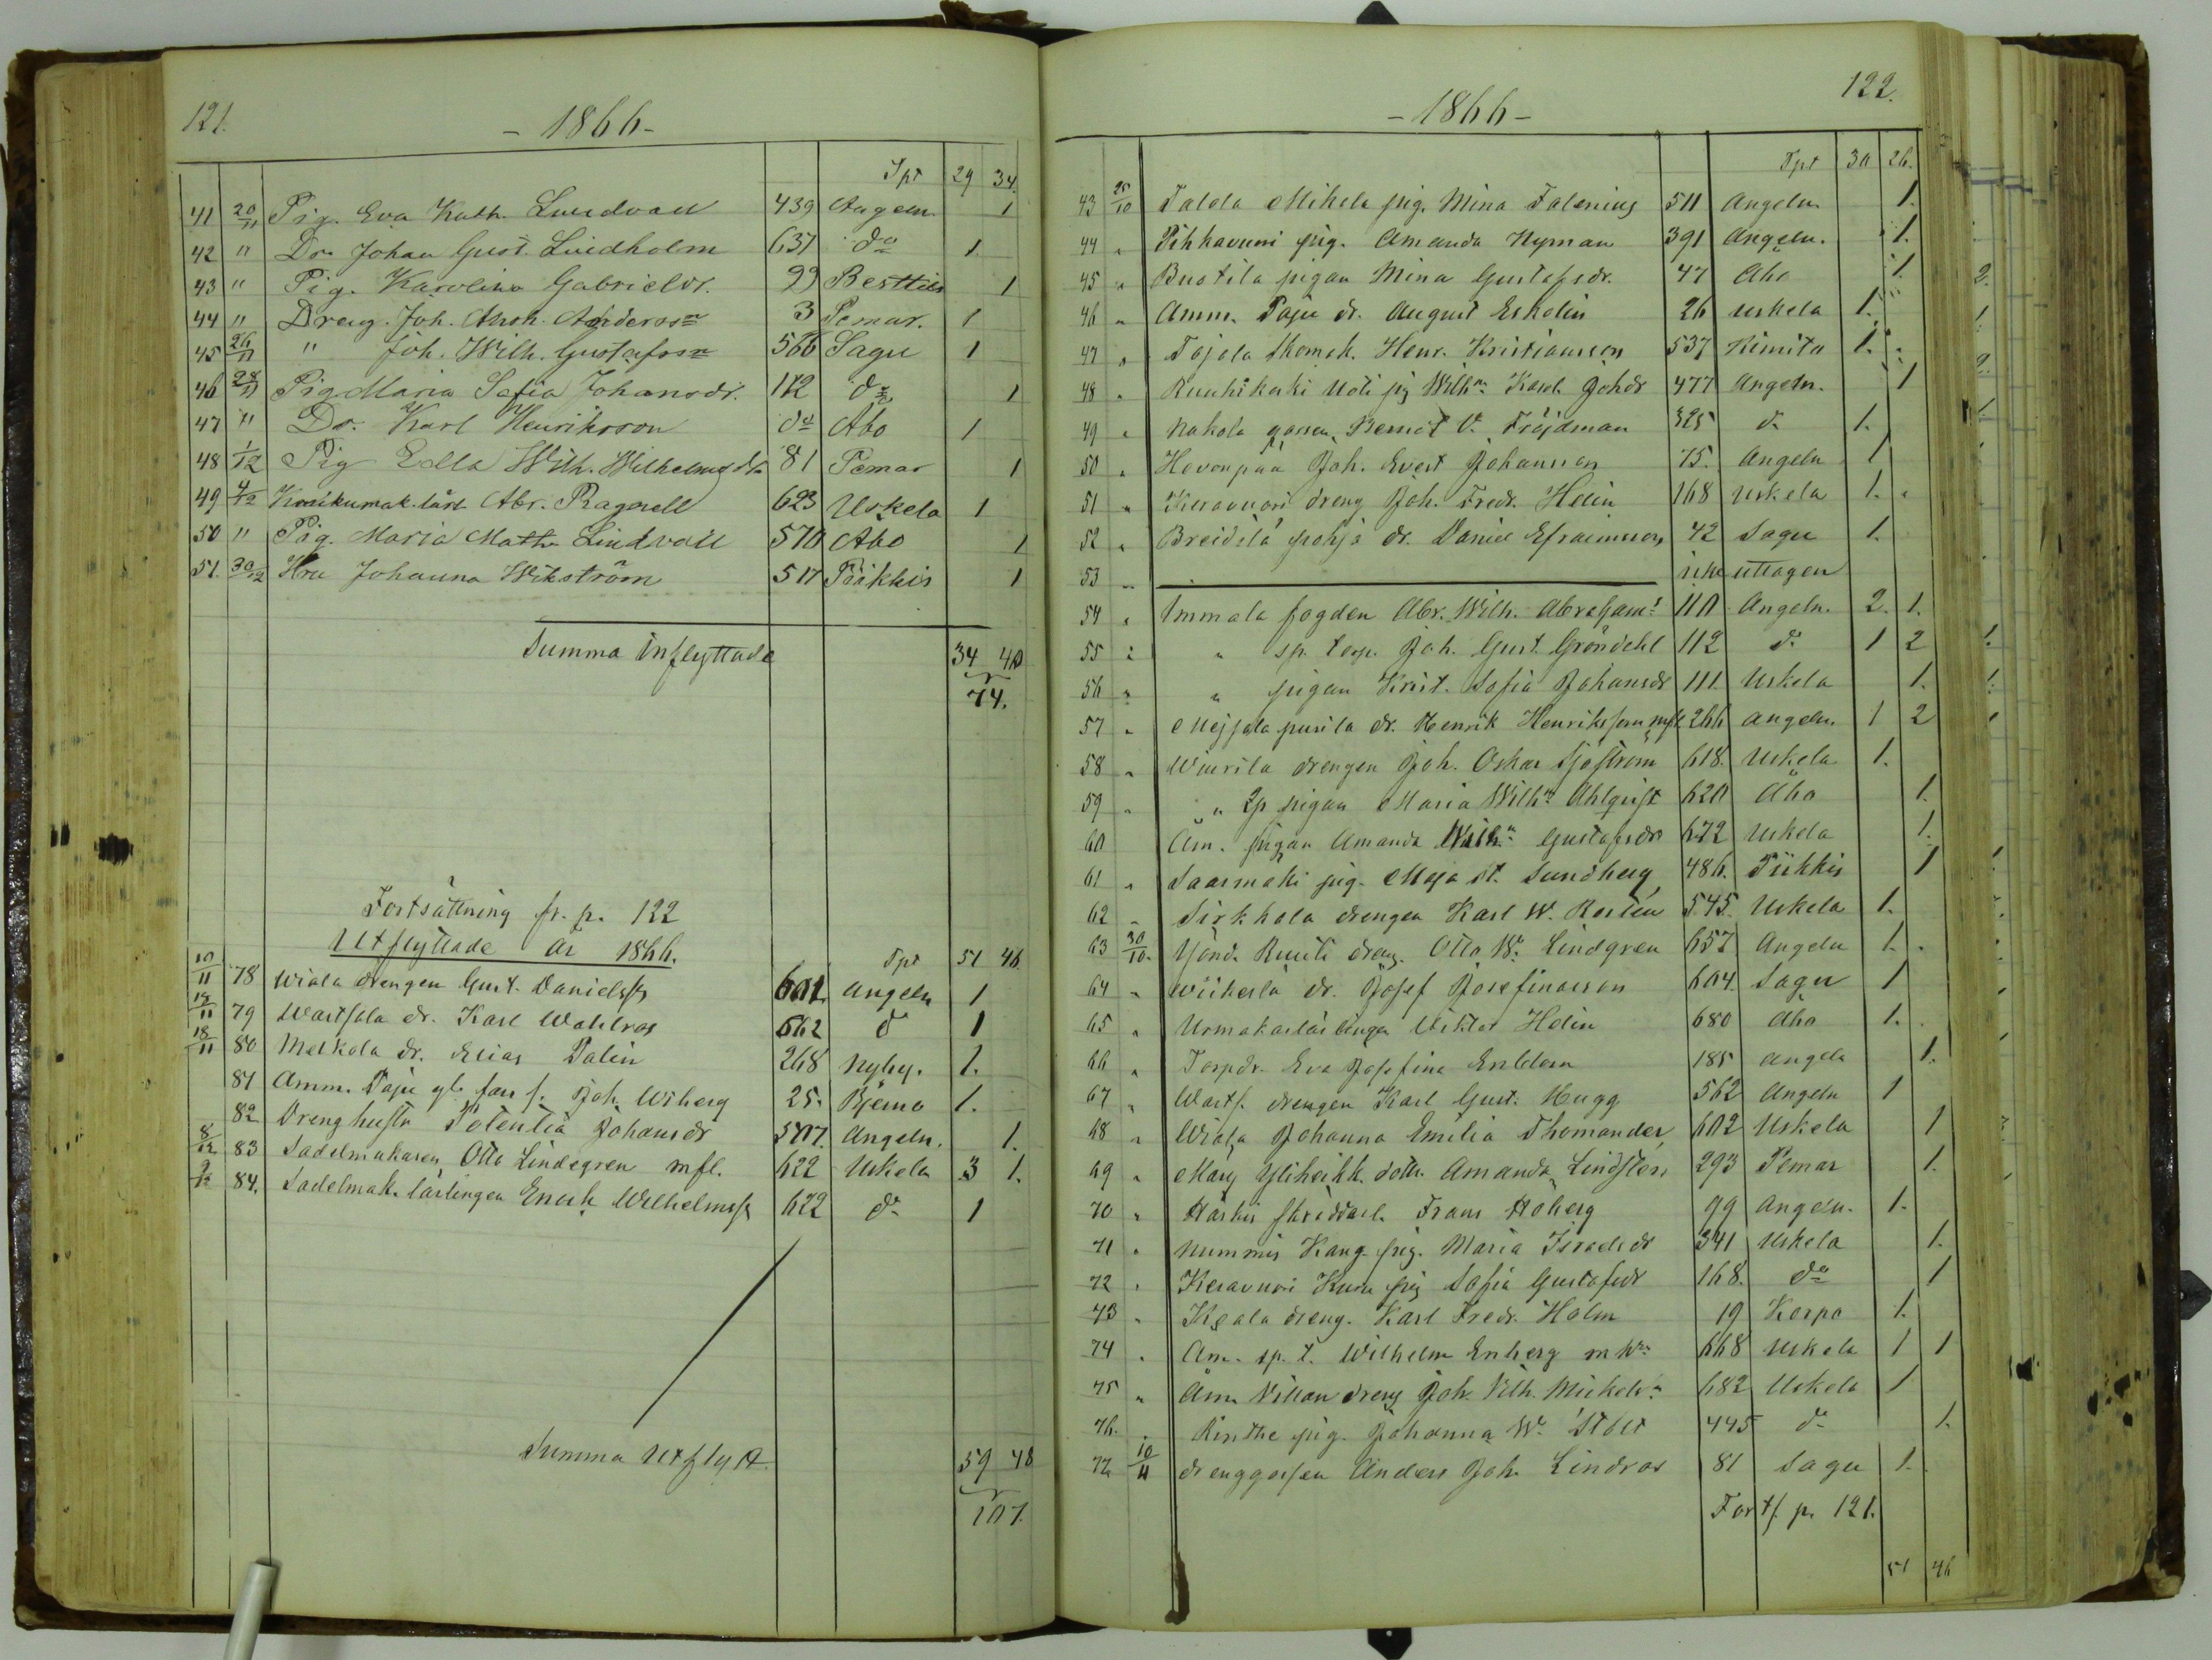 121.
- 1866 -
Tpt 29 34.
41 20/11 Pig. Eva Kath. Lundvall 439 Angeln. 1
42 " Dr. Johan Gust. Lindholm 637 do 1
43 " Pig. Karolina Gabrielsdr. 99 1
44 " Dreng. Joh. Anderssn 3 Pemar. 1
45 26/11 " Joh. Wilh. Gustafssn 566 Sagu 1
46 28/11 Pig Maria Sofia Johansdr. 112 do 1
47 " Dr. Karl Henriksson do Abo 1
48 1/12 Pig Edla Wilh. Wilhelmsdr 81 Pemar 1
49 4/12 Abr. Ragnell 623 Uskela 1
50 " Pig. Maria Math. Lindvall 570 Abo 1
51. 30/12 Hru Johanna Wikström 517 Piikkis 1
Summa Inflyttade 34 40
74.
Fortsättning fr. p. 122
Utflyttade år 1866.
Tpt 51 46
10/11 78 Wiala drengen Gust. Danielss 601. Angeln 1
12/11 79 Wartsala dr. Karl Wahlros 562 do 1
18/11 80 Meskola dr. Elias Palin 268 Nyby. 1.
81 Amm. Paju Joh. Wiberg 25. Bjerno 1.
82 Drenghustr Potentia Johansdr 507. Angeln. 1.
8/12 83 Sadelmakaren Otto Lindegren mfl. 622 Uskela 3 1.
9/12 84. Sadelmak. lärlingen Enok Wilhelmss 622 do 1
Summa Utflytt. 59 48
107.
122.
- 1866 -
Tpt 30 26.
43 25/10 Talola Mikola pig. Mina Falenius 511 Angeln. 1.
44 " Pihkavuori pig. Amanda Nyman 391 Angeln. 1.
45 " Bustila pigan Mina Gustafsdr. 47 Abo 1.
46 " Amm. Paju dr. August Eskolin 26 Uskela 1.
47 " Tajola skomak. Henr. Kristiansson 537 Kimito 1.
48 " Ruuhikoski Uoti pig Wilhna Karol. Johdr 477 Angeln. 1
49 " Nakola gossen Berndt V. Fröjdman 325 do 1.
50 " Hevonpää Joh. Evert Johansson 75. Angeln 1
51 " Keravuori dreng Joh. Fredr. Helin 168 Uskela 1.
52 " Breidilä pohja dr. Daniel Efraimsson 42 Sagu 1.
53 " icke uttagen
54 " Immala fogden Abr. Wilh. Abrahams 110 Angeln. 2. 1.
55 " " sp. torp. Joh. Gust. Gröndahl 112 do 1 2
56 " " pigan Krist. Sofia Johansdr 111. Uskela 1.
57 " Mejjala pusila dr. Henrik Henriksson mfl 266 Angeln. 1 2
58 " Wiurila drengen Joh. Oskar Sjöström 618. Uskela 1.
59 " " Sp pigan Maria Wilhna Ahlqvist 620 Åbo 1.
60 Am. pigan Amanda Wilhna Gustafsdr 672 Uskela 1.
61 " Saarmäki pig. Maja St. Sundberg 486. Piikkis 1
62 " Sirkkala drengen Karl W. Roslen 545. Uskela 1.
63 30/10. Yönd. Ruuti dreng. Otto Wm Lindgren 657 Angeln 1.
64 " Wiikerlä dr. Josef Josefinasson 604. Sagu 1
65 " Urmakarlärlingen Viktor Helin 680 Åbo 1.
66 " Torpdr. Eva Josefina Enblom 185 Angeln 1.
67 " Warts. drengen Karl Gust. Hugg 562 Angeln 1
68 " Wiala Johanna Emilia Thomander 602 Uskela 1
69 " Yliheikk. dottr. Amanda Lindsten 293 Pemar 1.
70 " skräddarl. Frans Åberg 99 Angeln. 1.
71 " Nummis Kang. pig. Maria Israelsdr 341 Uskela 1.
72 " Keravuori pig Sofia Gustafsdr 168. do 1
73 " Keala dreng. Karl Fredr. Holm 19 Korpo 1.
74 " Am. sp. t. Wilhelm Enberg m hu 668 Uskela 1 1
75 " Am. Nissan dreng Joh. Vilh. Mickels 682 Uskela 1
76. " Rinthe pig. Johanna Wa Stolt 445 do 1.
77 10/11 drenggossen Anders Joh. Lindros 81 Sagu 1.
Forts. p. 121.
51 46